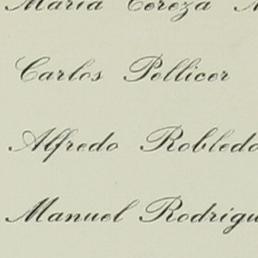 María Tereza
Carlos Pellicer
Alfredo Robledo
Manuel Rodrígu